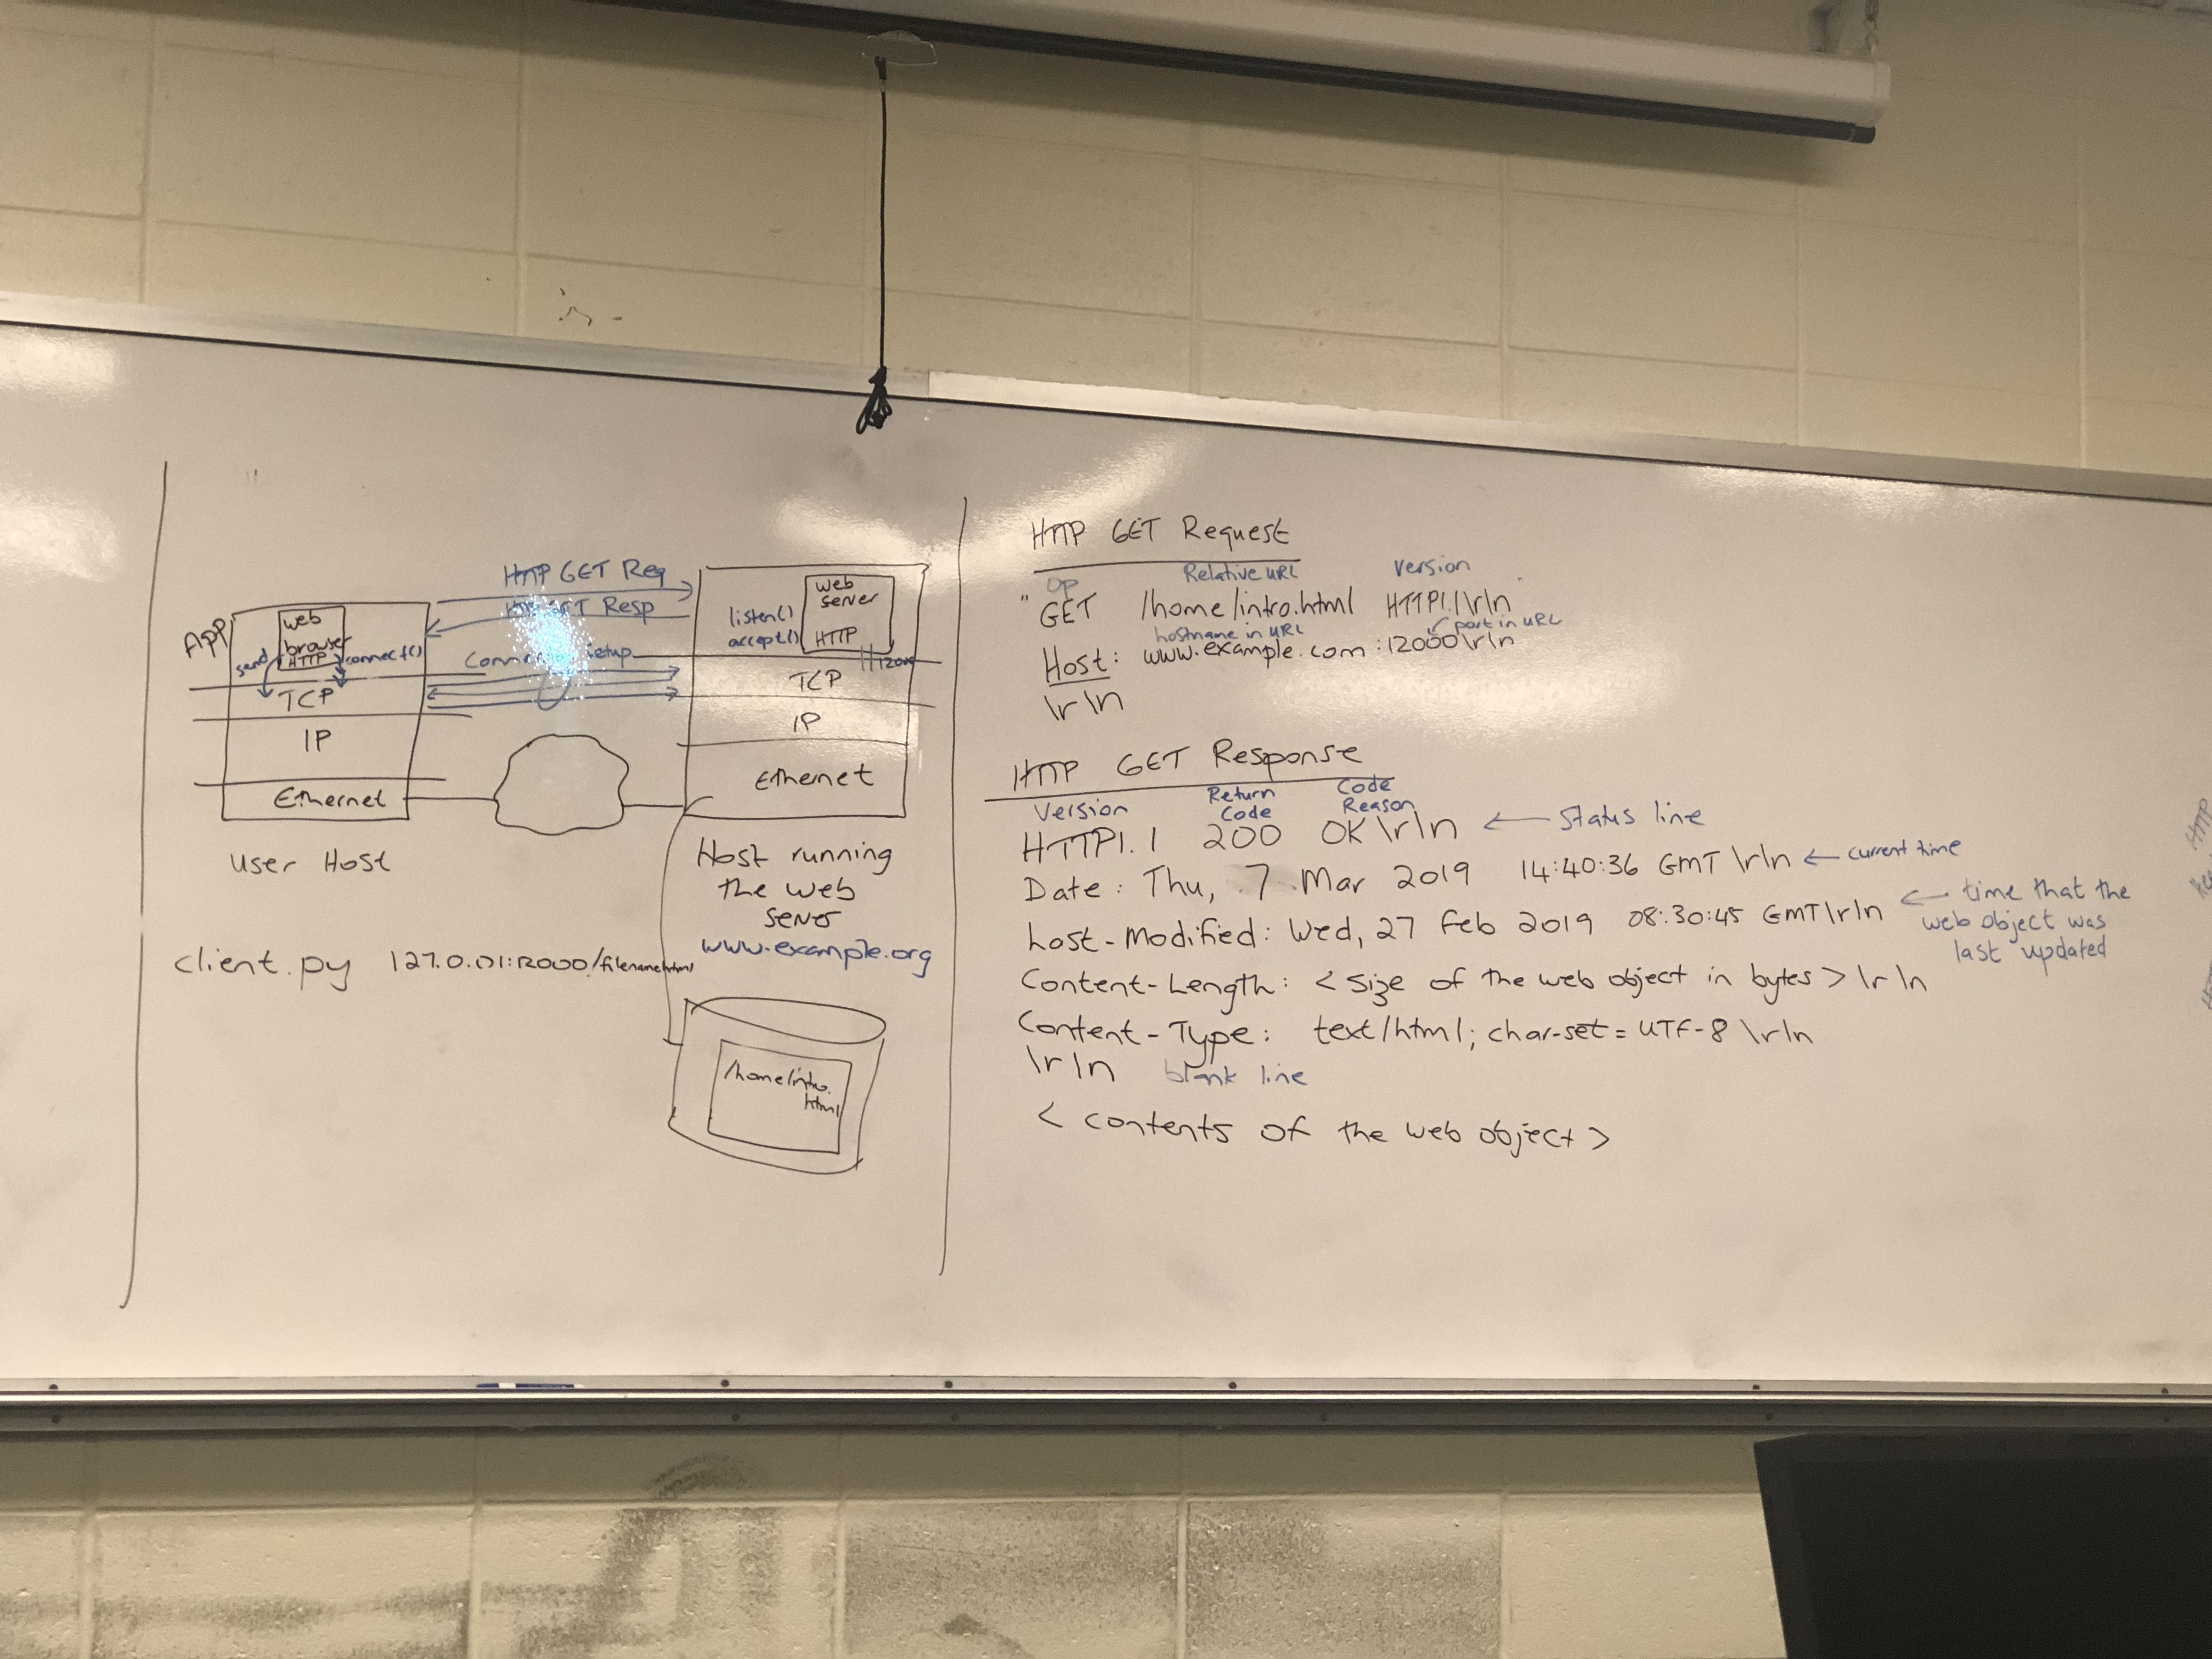 HTTP GET Req
GET Resp
APP
web
browser
HTTP
send
connect()
setup
TCP
IP
Ethernet
User Host
listen()
accept()
web
server
HTTP
TCP
IP
Ethernet
Host running
the web
server
www.example.org
client.py 127.0.0.1:12000/filename.html
/home/intro.
html
HTTP GET Request
OP Relative URL Version
"GET /home/intro.html HTTP1.1\r\n
hostname in URL port in URL
Host: www.example.com:12000\r\n
\r\n
HTTP GET Response
Version Return Code Code Reason
HTTP1.1 200 OK\r\n ← Status line
Date: Thu, 7 Mar 2019 14:40:36 GMT\r\n ← current time
Last-Modified: Wed, 27 Feb 2019 08:30:45 GMT\r\n ← time that the
web object was
last updated
Content-Length: <size of the web object in bytes>\r\n
Content-Type: text/html; char-set=UTF-8\r\n
\r\n blank line
<contents of the web object>
HTTP